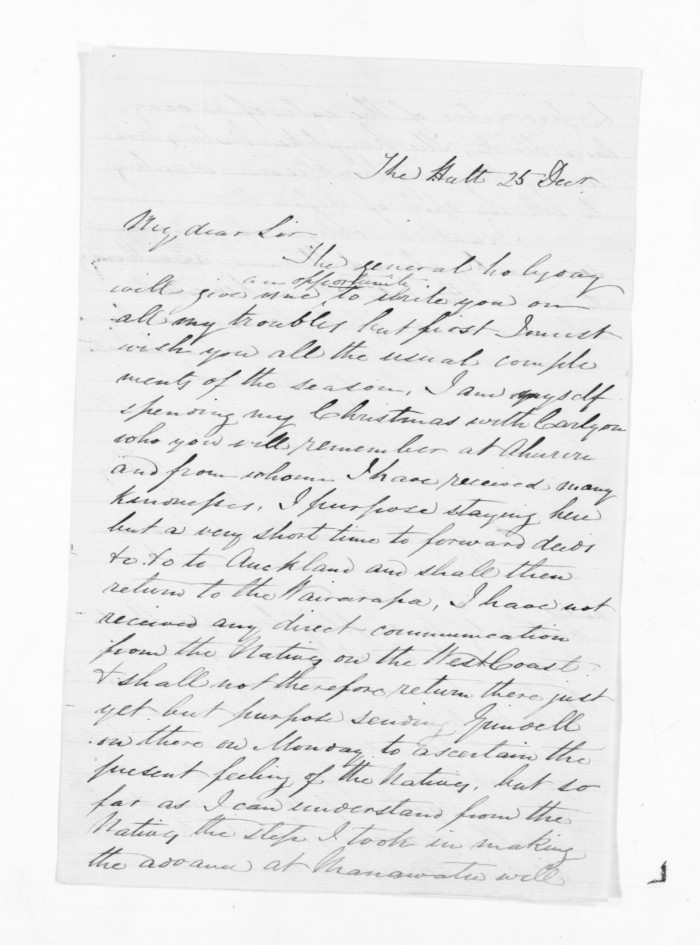 The Hutt 25 Decr
My dear Sir
The general holyday
will give me an opportunity to write you on
all my troubles but first I must
wish you all the usual comple
ments of the season, I am myself
spending my Christmas with Carlyon
who you will remember at Ahuriri
and from whom I have received many
kindnesses, I purpose staying here
but a very short time to forward deeds
&c. &c to Auckland and shall then
return to the Wairarapa, I have not
received any direct communication
from the Natives on the West Coast
& shall not therefore return there just
yet but purpose sending Grindell
on there on Monday to ascertain the
present feeling of the Natives, but so
far as I can understand from the
Natives the step I took in making
the advance at Manawatu will